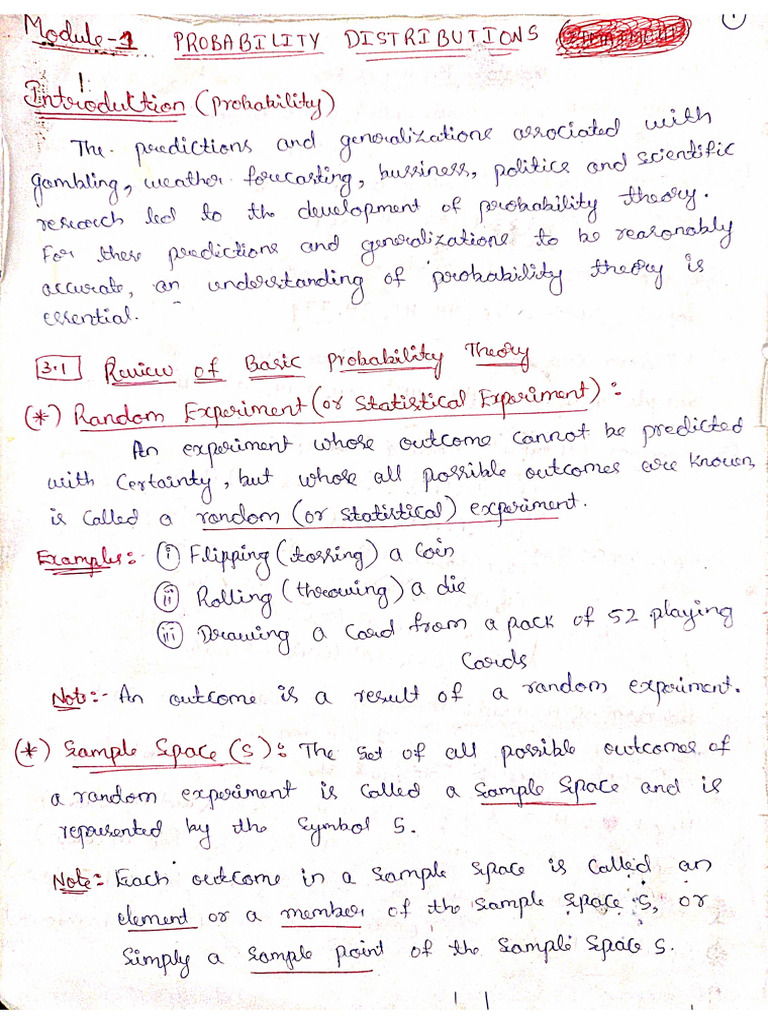 Module-1 PROBABILITY DISTRIBUTIONS
1
Introduction (Probability)
The predictions and generalizations associated with
gambling, weather forecasting, bussiness, politics and scientific
research led to the development of probability theory.
For these predictions and generalizations to be reasonably
accurate, an understanding of probability theory is
essential.
3.1 Review of Basic Probability Theory
(*) Random Experiment (or Statistical Experiment) :
An experiment whose outcome cannot be predicted
with Certainty, but whose all possible outcomes are known,
is called a random (or statistical) experiment.
Examples:- (i) Flipping (tossing) a Coin
(ii) Rolling (throwing) a die
(iii) Drawing a Card from a pack of 52 playing
Cards
Note:- An outcome is a result of a random experiment.
(*) Sample Space (S): The Set of all possible outcomes of
a random experiment is called a Sample Space and is
represented by the Symbol S.
Note: Each outcome in a Sample Space is called an
element or a member of the Sample Space S, or
Simply a Sample point of the Sample Space S.